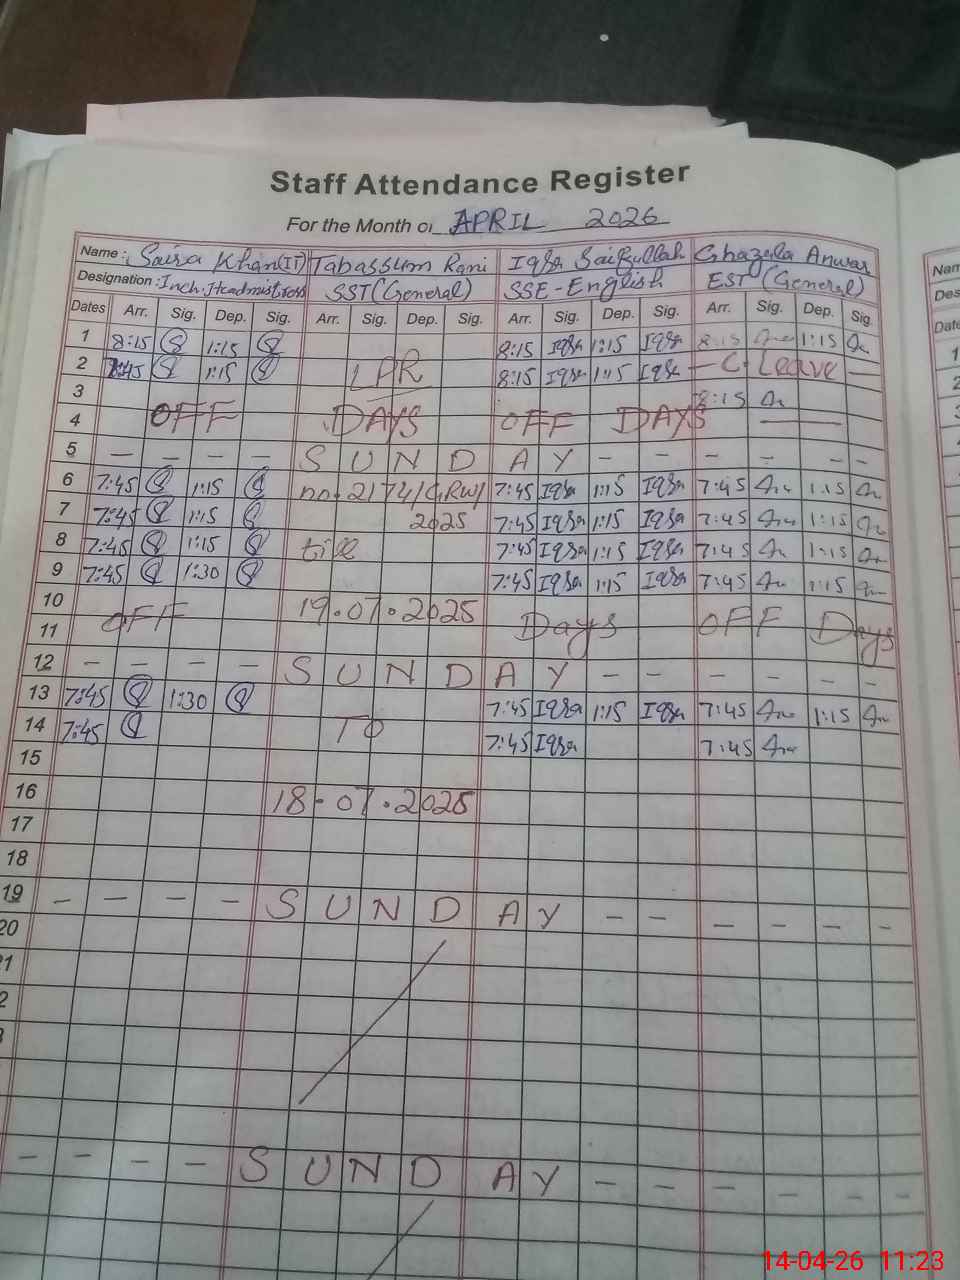 Staff Attendance Register
For the Month of APRIL 2026
Name: Saira Khan(IT) Tabassum Rani Iqra Saifullah Ghazala Anwar
Designation: Inch. Headmistress SST(General) SSE-English EST (General)
Dates Arr. Sig. Dep. Sig. Arr. Sig. Dep. Sig. Arr. Sig. Dep. Sig. Arr. Sig. Dep. Sig.
1 8:15 1:15 8:15 Iqra 1:15 Iqra 8:15 1:15
2 7:45 1:15 LPR 8:15 Iqra 1:15 Iqra — C. Leave —
3 8:15
4 OFF DAYS OFF DAYS —
5 — — — — S U N D A Y - - - - - -
6 7:45 1:15 no. 2174/GRW/ 7:45 Iqra 1:15 Iqra 7:45 1:15
7 7:45 1:15 2025 7:45 Iqra 1:15 Iqra 7:45 1:15
8 7:45 1:15 till 7:45 Iqra 1:15 Iqra 7:45 1:15
9 7:45 1:30 7:45 Iqra 1:15 Iqra 7:45 1:15
10 19.07.2025
11 OFF Days OFF Days
12 - - - - S U N D A Y - - - - - -
13 7:45 1:30 7:45 Iqra 1:15 Iqra 7:45 1:15
14 7:45 TO 7:45 Iqra 7:45
15
16 18.07.2025
17
18
19 - - - - S U N D A Y - - - - - -
20
- - - - S U N D A Y - - - - - -
14-04-26 11:23